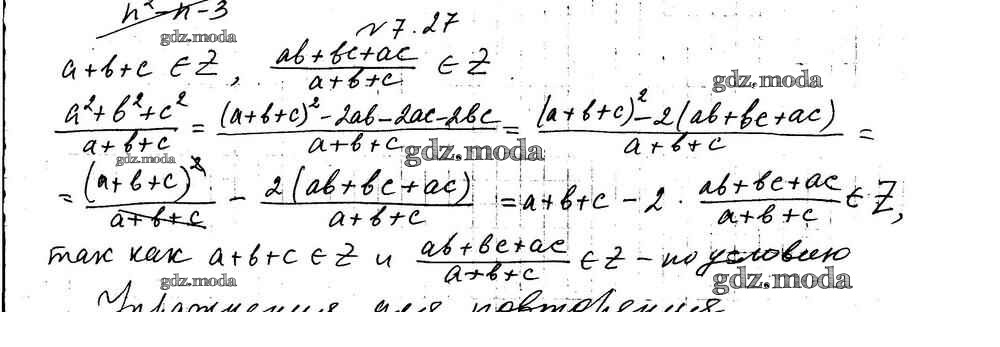 n² - n - 3
№ 7.27
gdz.moda
a+b+c ∈ Z, (ab+bc+ac)/(a+b+c) ∈ Z
gdz.moda
(a²+b²+c²)/(a+b+c) = ((a+b+c)² - 2ab - 2ac - 2bc)/(a+b+c) = ((a+b+c)² - 2(ab+bc+ac))/(a+b+c) =
gdz.moda
gdz.moda
= (a+b+c)²/(a+b+c) - 2(ab+bc+ac)/(a+b+c) = a+b+c - 2 · (ab+bc+ac)/(a+b+c) ∈ Z,
так как a+b+c ∈ Z и (ab+bc+ac)/(a+b+c) ∈ Z - по условию
gdz.moda
gdz.moda
Упражнения для повторения